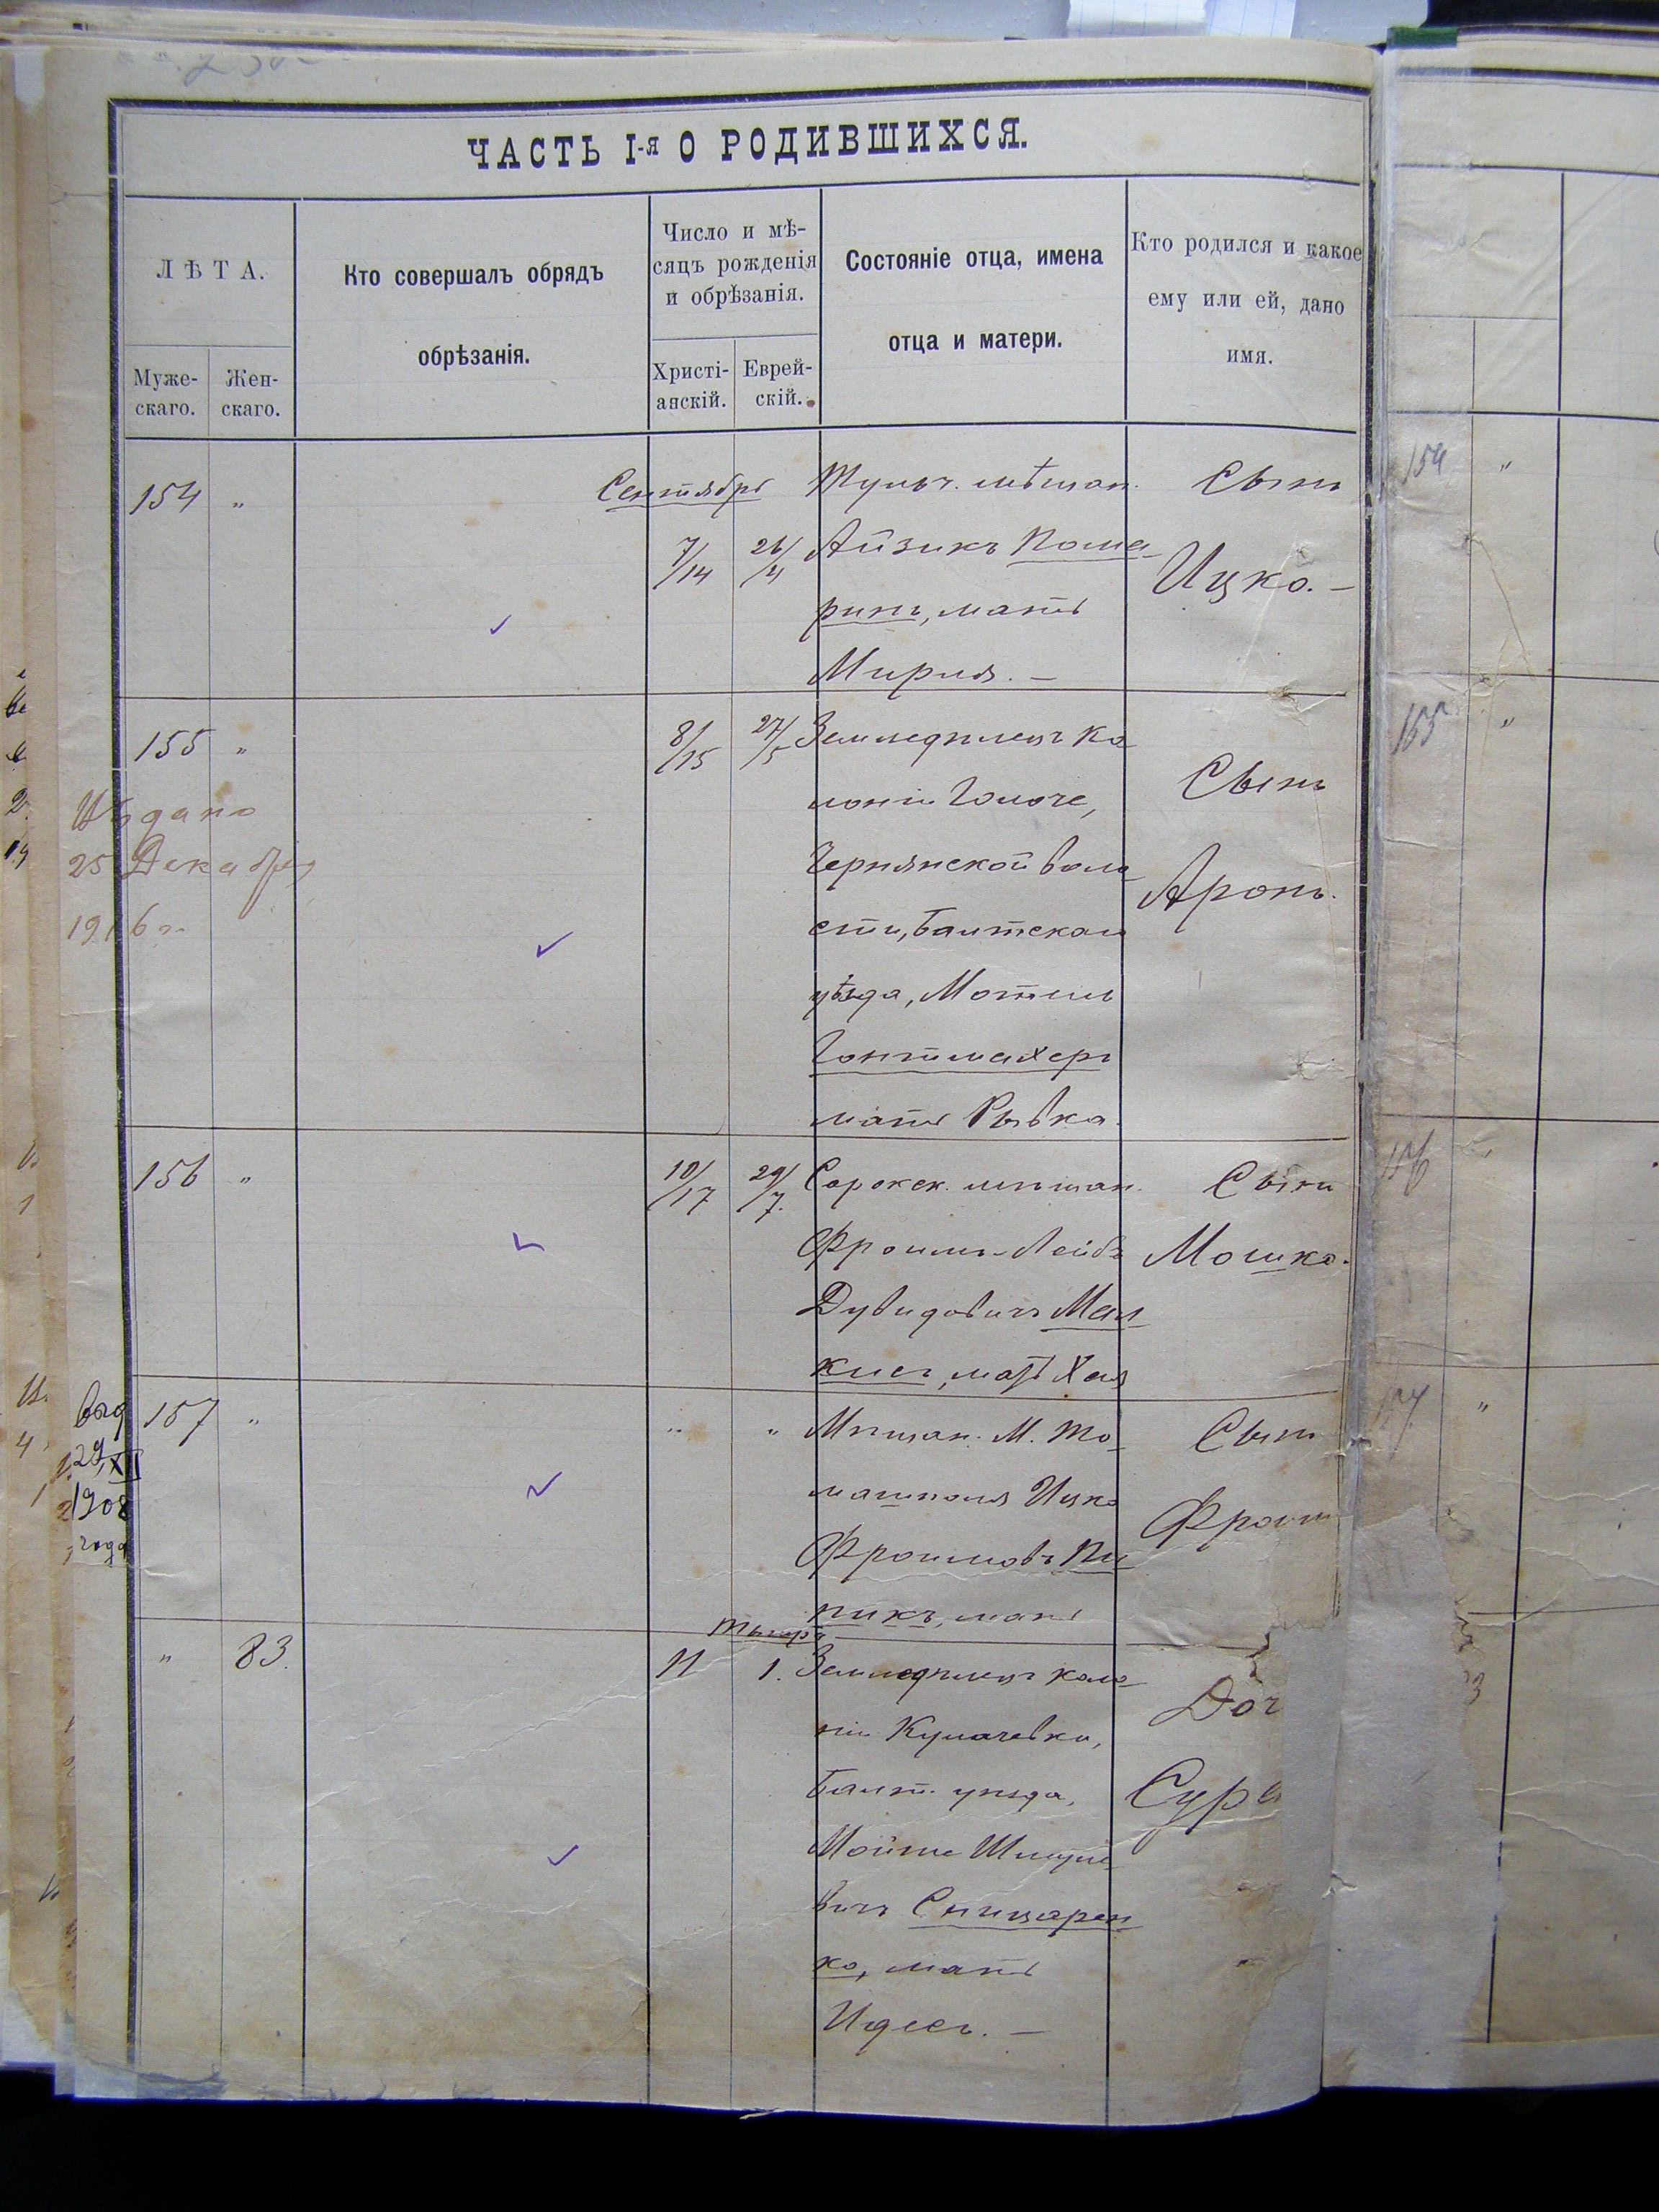 ЧАСТЬ I-я О РОДИВШИХСЯ.
ЛѢТА.
Муже-
скаго.
Жен-
скаго.
Кто совершалъ обрядъ
обрѣзанія.
Число и мѣ-
сяцъ рожденія
и обрѣзанія.
Христі-
анскій.
Еврей-
скій.
Состояніе отца, имена
отца и матери.
Кто родился и какое
ему или ей, дано
имя.
154 "
Сентябрь
7/14 26/4
Тульч. мѣщан.
Айзикъ Пома
ринъ, мать
Мирия. —
Сынъ
Ицко. —
155 "
25 Декабря
1916 г.
8/15 27/5
Земледѣлецъ Ко
лоніи Гомоче,
Чернянской воло
сти, Балтскаго
уѣзда, Мотель
Гонтмахеръ
мать Рывка.
Сынъ
Аронъ.
156 "
10/17 29/7.
Сорокск. мѣщан.
Фроимъ-Лейбъ
Дувидовичъ Мал
кисъ, мать Хая
Сынъ
Мошко.
выд
29/XII
1908
года
157 "
" "
Мѣщан. М. То
машполя Ицко
Фроимовъ Пи
никъ, мать
Сынъ
Фроим
" 83.
11 1.
Земледѣлецъ коло
ніи Кулачевка,
Балт. уѣзда,
Мойше Шмуле
вичъ Спицарен
ко, мать
Идесъ. —
Доч
Сура
154 "
155 "
156
157 "
3